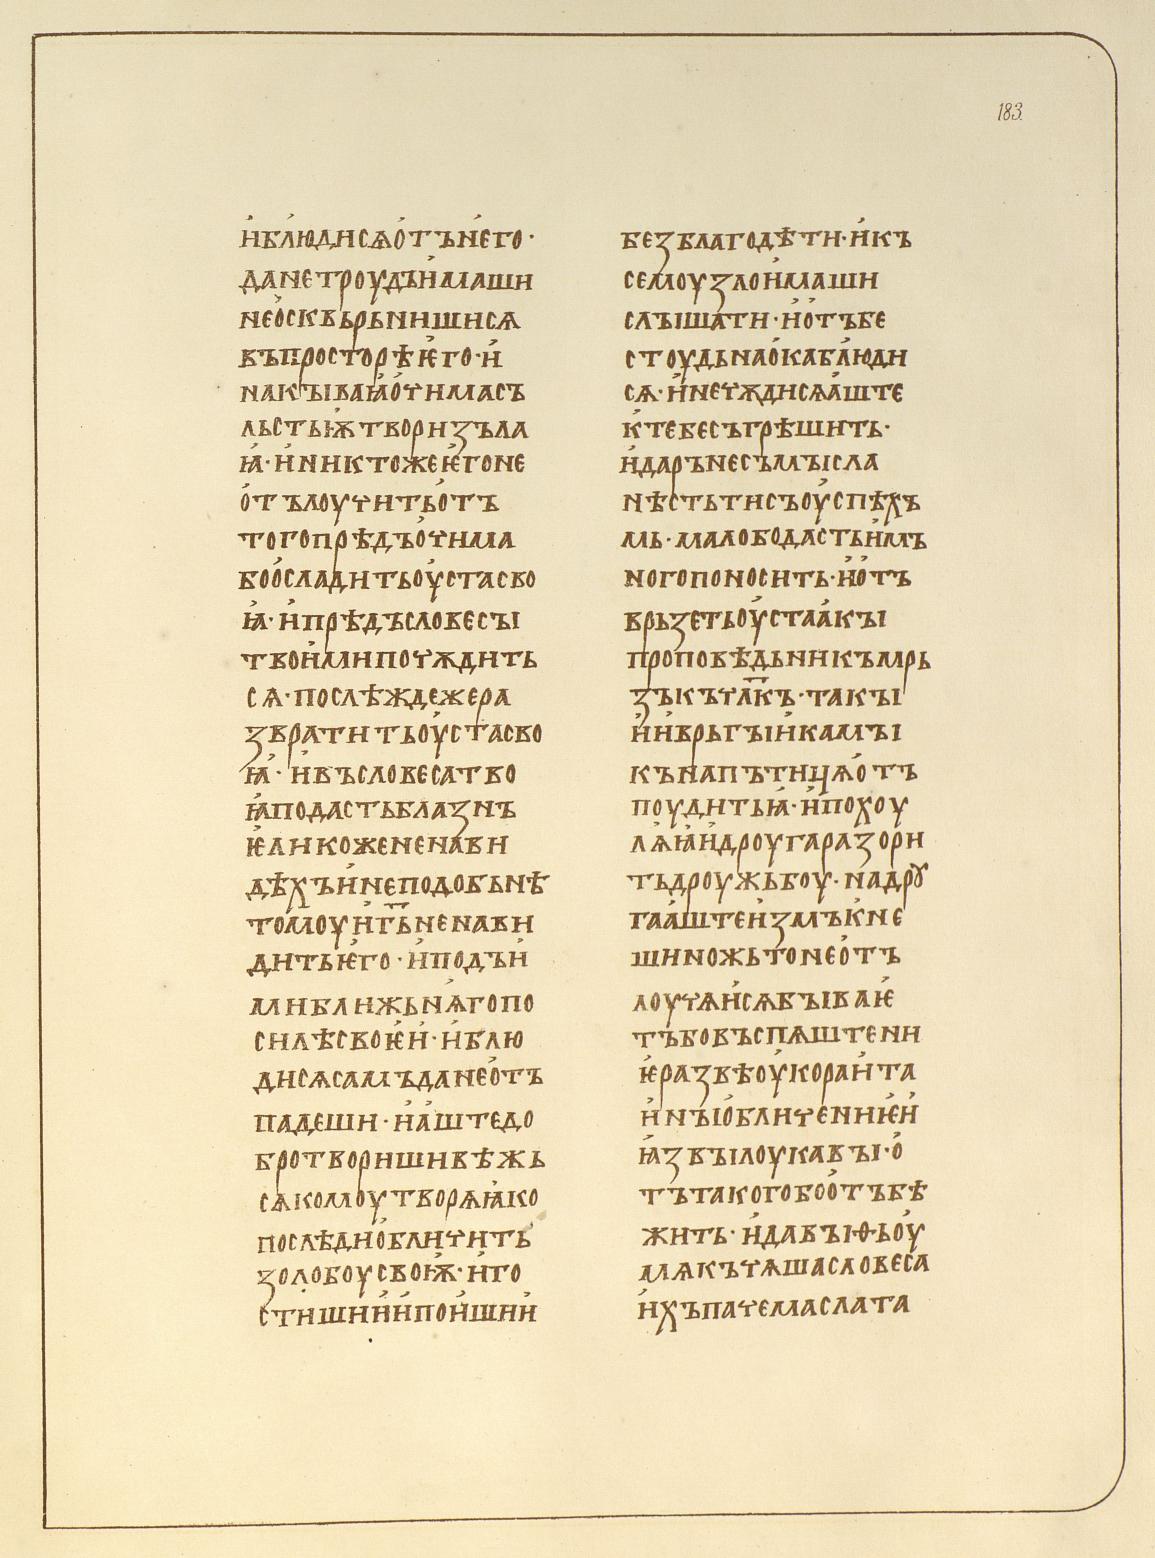 183.
и҆бл҆юдисѧо҆тъне҆го·
данетроудъи҆маши
нео҆сквьрьнишисѧ
въпросторѣѥ҆го·и҆
накꙑваꙗ҆о҆чимасъ
льстьѭ҆творизъла
ꙗ҆·и҆никтожеѥ҆гоне
о҆тълоучитьо҆тъ
тогопрѣдъо҆чима
боо҆сладитьоу҆стасво
ꙗ҆·и҆прѣдъсловесꙑ
твои҆мипочѫдить
сѧ·послѣждежера
звратитьоу҆стасво
ꙗ҆·и҆въсловесатво
ꙗ҆подастьблазнъ
ѥ҆ликожененави
дѣхъи҆неподобьнѣ
томоуи҆г҃ьненави
дитьѥ҆го·и҆подъи҆
миближьнѧ҆гопо
силѣсвоѥ҆и҆·и҆блю
дисѧсамъданео҆тъ
падеши·и҆а҆штедо
бротворишивѣжь
сѧкомоутворѧꙗ҆ко
послѣдио҆бличить
золобоусвоѭ҆·и҆го
стишии҆и҆пои҆шии҆
безблагодѣти·и҆къ
семоузлои҆маши
слꙑшати·и҆о҆тъбе
стоудьнао҆кабл҆юди
сѧ·и҆нечѫдисѧа҆ште
к҆тебесъгрѣшить·
и҆даръиесъмꙑсла
нѣстьтисъоу҆спѣхъ
мь·малободастьи҆мъ
ногопоносить·и҆о҆тъ
врьзетьоу҆стаа҆кꙑ
проповѣдьникъмрь
зъкъчл҃къ·такꙑ
и҆и҆врьгꙑи҆камꙑ
кънапътицѧо҆тъ
поудитьꙗ҆·и҆похоу
лѧꙗ҆и҆дроугаразори
тьдроужьбоу·надрꙋ
гаа҆штеи҆змък҆не
шиножьтонео҆тъ
лоучѧи҆сѧбꙑваѥ҆
тъбовъспѧштени
ѥ҆развѣоу҆кораи҆та
и҆нꙑо҆бличениѥ҆и҆
ꙗ҆звꙑлоукавꙑ·о҆
тътакогобоо҆тъбѣ
жить·и҆давꙑѳьоу҆
мѧкъчѧшасловеса
и҆хъпачемаслата